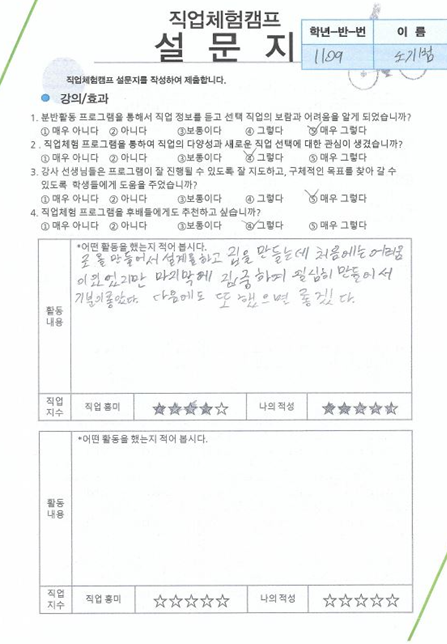 직업체험캠프
설 문 지
학년-반-번
이 름
1109
소기범
직업체험캠프 설문지를 작성하여 제출합니다.
강의/효과
1. 분반활동 프로그램을 통해서 직업 정보를 듣고 선택 직업의 보람과 어려움을 알게 되었습니까?
① 매우 아니다 ② 아니다 ③보통이다 ④ 그렇다 ⑤ 매우 그렇다
2 . 직업체험 프로그램을 통하여 직업의 다양성과 새로운 직업 선택에 대한 관심이 생겼습니까?
① 매우 아니다 ② 아니다 ③보통이다 ④ 그렇다 ⑤ 매우 그렇다
3. 강사 선생님들은 프로그램이 잘 진행될 수 있도록 잘 지도하고, 구체적인 목표를 찾아 갈 수
있도록 학생들에게 도움을 주었습니까?
① 매우 아니다 ② 아니다 ③보통이다 ④ 그렇다 ⑤ 매우 그렇다
4. 직업체험 프로그램을 후배들에게도 추천하고 싶습니까?
① 매우 아니다 ② 아니다 ③보통이다 ④ 그렇다 ⑤ 매우 그렇다
*어떤 활동을 했는지 적어 봅시다.
만들어서 설계를 하고 집을 만들는데 처음에는 어려움
이 있었지만 마지막에 집중하여 열심히 만들어서
기분이 좋았다. 다음에도 또 했으면 좋겠다.
활동
내용
직업
지수
직업 흥미
★★★★☆
나의 적성
★★★★★
*어떤 활동을 했는지 적어 봅시다.
활동
내용
직업
지수
직업 흥미
☆☆☆☆☆
나의 적성
☆☆☆☆☆